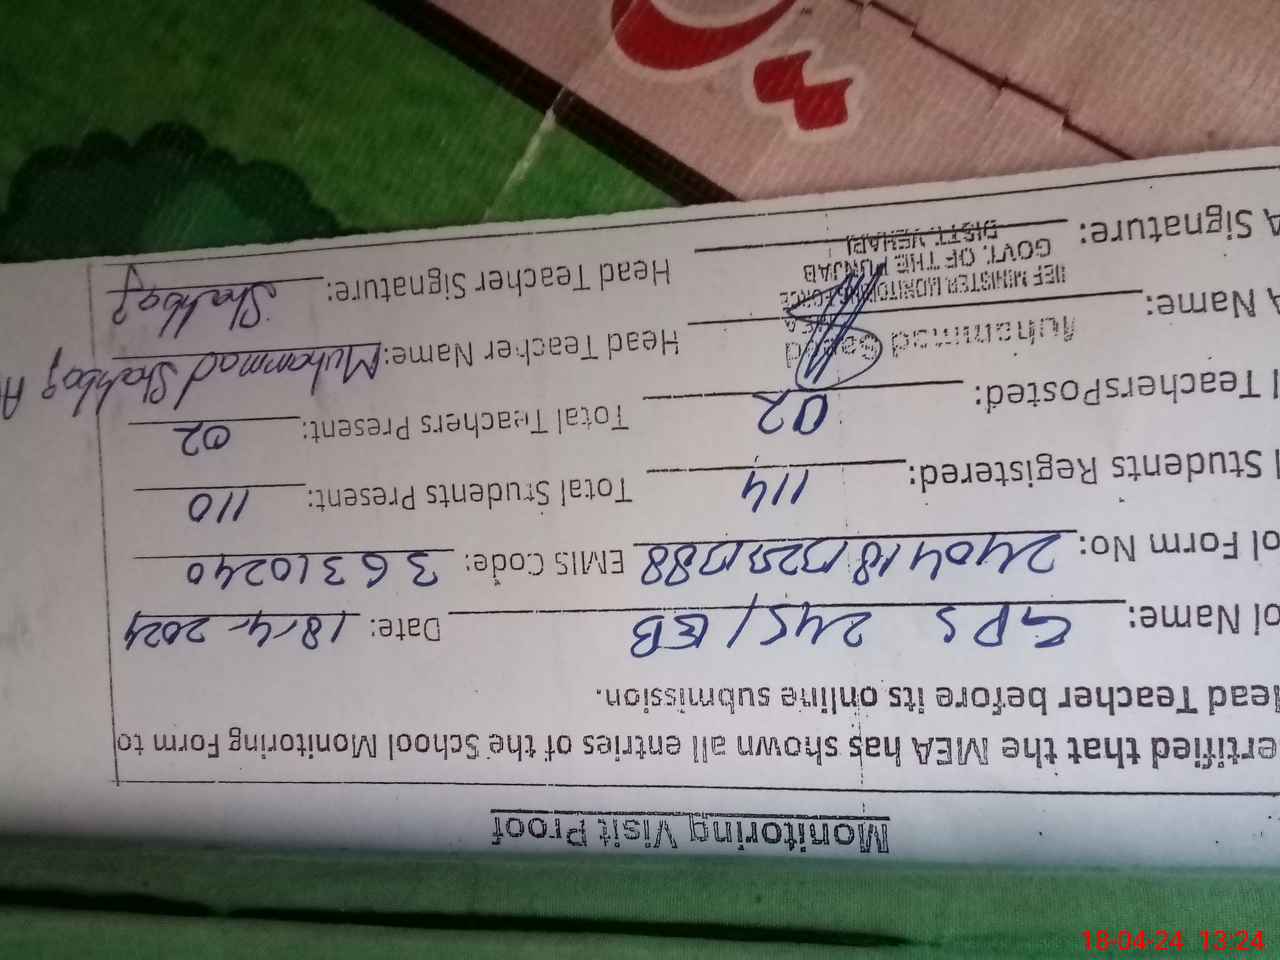 Monitoring Visit Proof
ertified that the MEA has shown all entries of the School Monitoring Form to
ead Teacher before its online submission.
ol Name: GPS 245/EB Date: 18-4-2024
ol Form No: EMIS Code: 36310240
l Students Registered: 114 Total Students Present: 110
l TeachersPosted: 02 Total Teachers Present: 02
A Name: Muhammad Saeed Head Teacher Name: Muhammad Shahbaz A
MEA
IEF MINISTER MONITORING FORCE
A Signature: GOVT. OF THE PUNJAB Head Teacher Signature: Shahbaz
DISTT. VEHARI
18-04-24 13:24